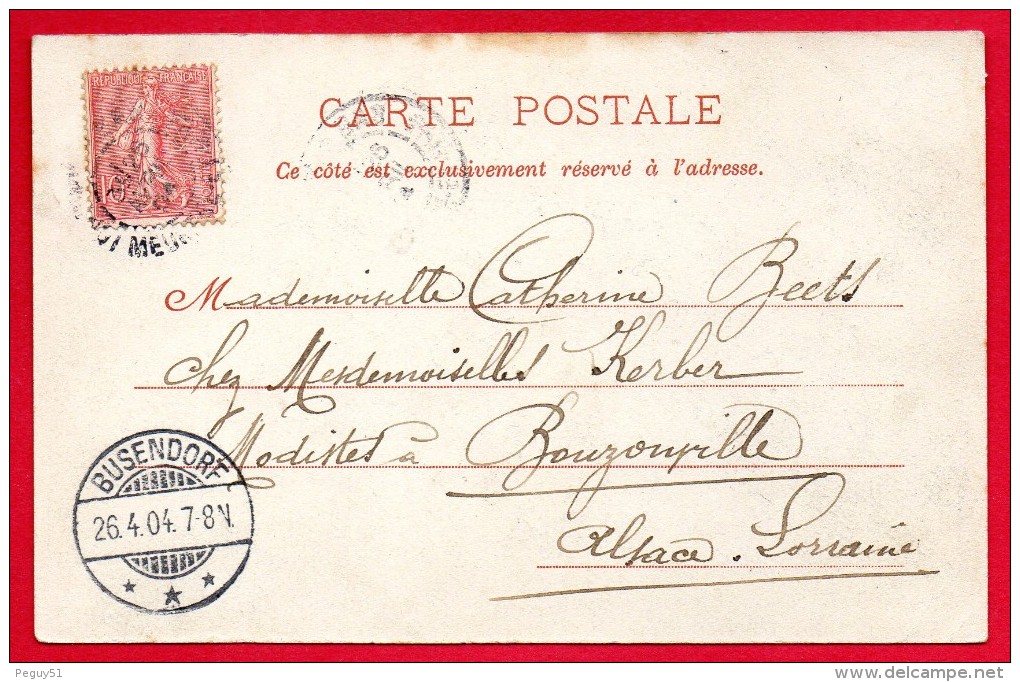 REPUBLIQUE FRANÇAISE
CARTE POSTALE
Ce côté est exclusivement réservé à l'adresse.
Mademoiselle Catherine Beets
chez Mesdemoiselles Kerber
Modistes à Bouzonville
Alsace. Lorraine
BUSENDORF
26.4.04.7-8N.
Peguy51
www.delcampe.net